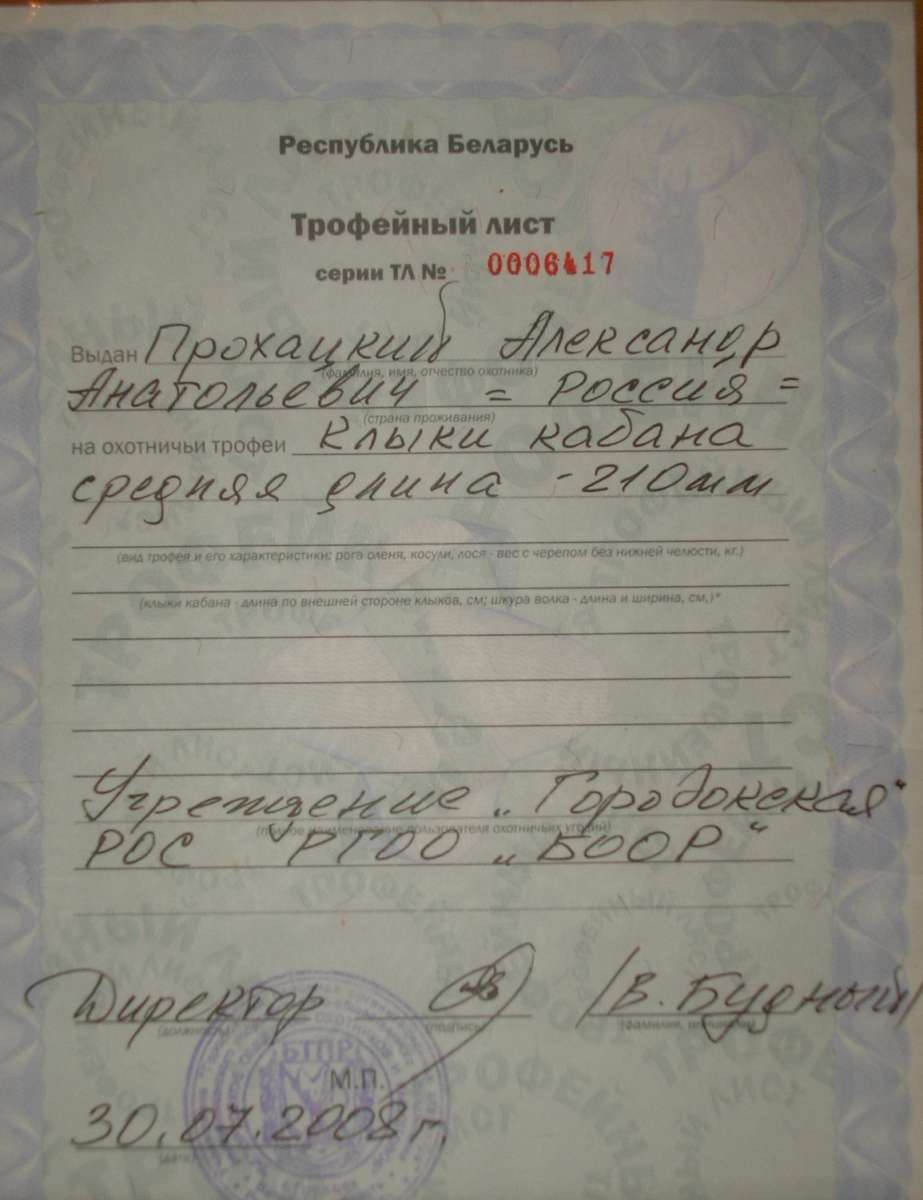 Республика Беларусь
Трофейный лист
серии ТЛ № 0006417
Выдан Прохацкий Александр
(фамилия, имя, отчество охотника)
Анатольевич = Россия =
(страна проживания)
на охотничьи трофеи Клыки кабана
средняя длина - 210 мм
(вид трофея и его характеристики: рога оленя, косули, лося - вес с черепом без нижней челюсти, кг.)
(клыки кабана - длина по внешней стороне клыков, см; шкура волка - длина и ширина, см.)*
Учреждение „Городокская"
(полное наименование пользователя охотничьих угодий)
РОС РГОО „БООР"
Директор /В. Будный/
(должность) (подпись) (фамилия, инициалы)
БТПР
М.П.
30.07.2008 г.
(дата)